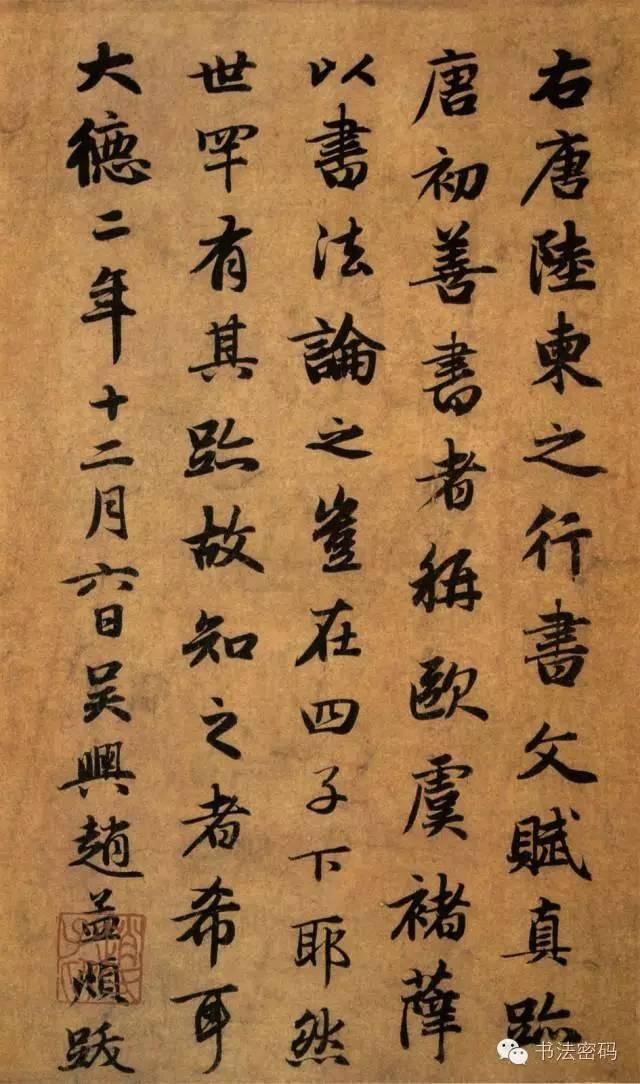 右唐陸柬之行書文賦真跡
唐初善書者稱歐虞褚薛
以書法論之豈在四子下耶然
世罕有其跡故知之者希耳
大德二年十二月六日吳興趙孟頫跋
书法密码